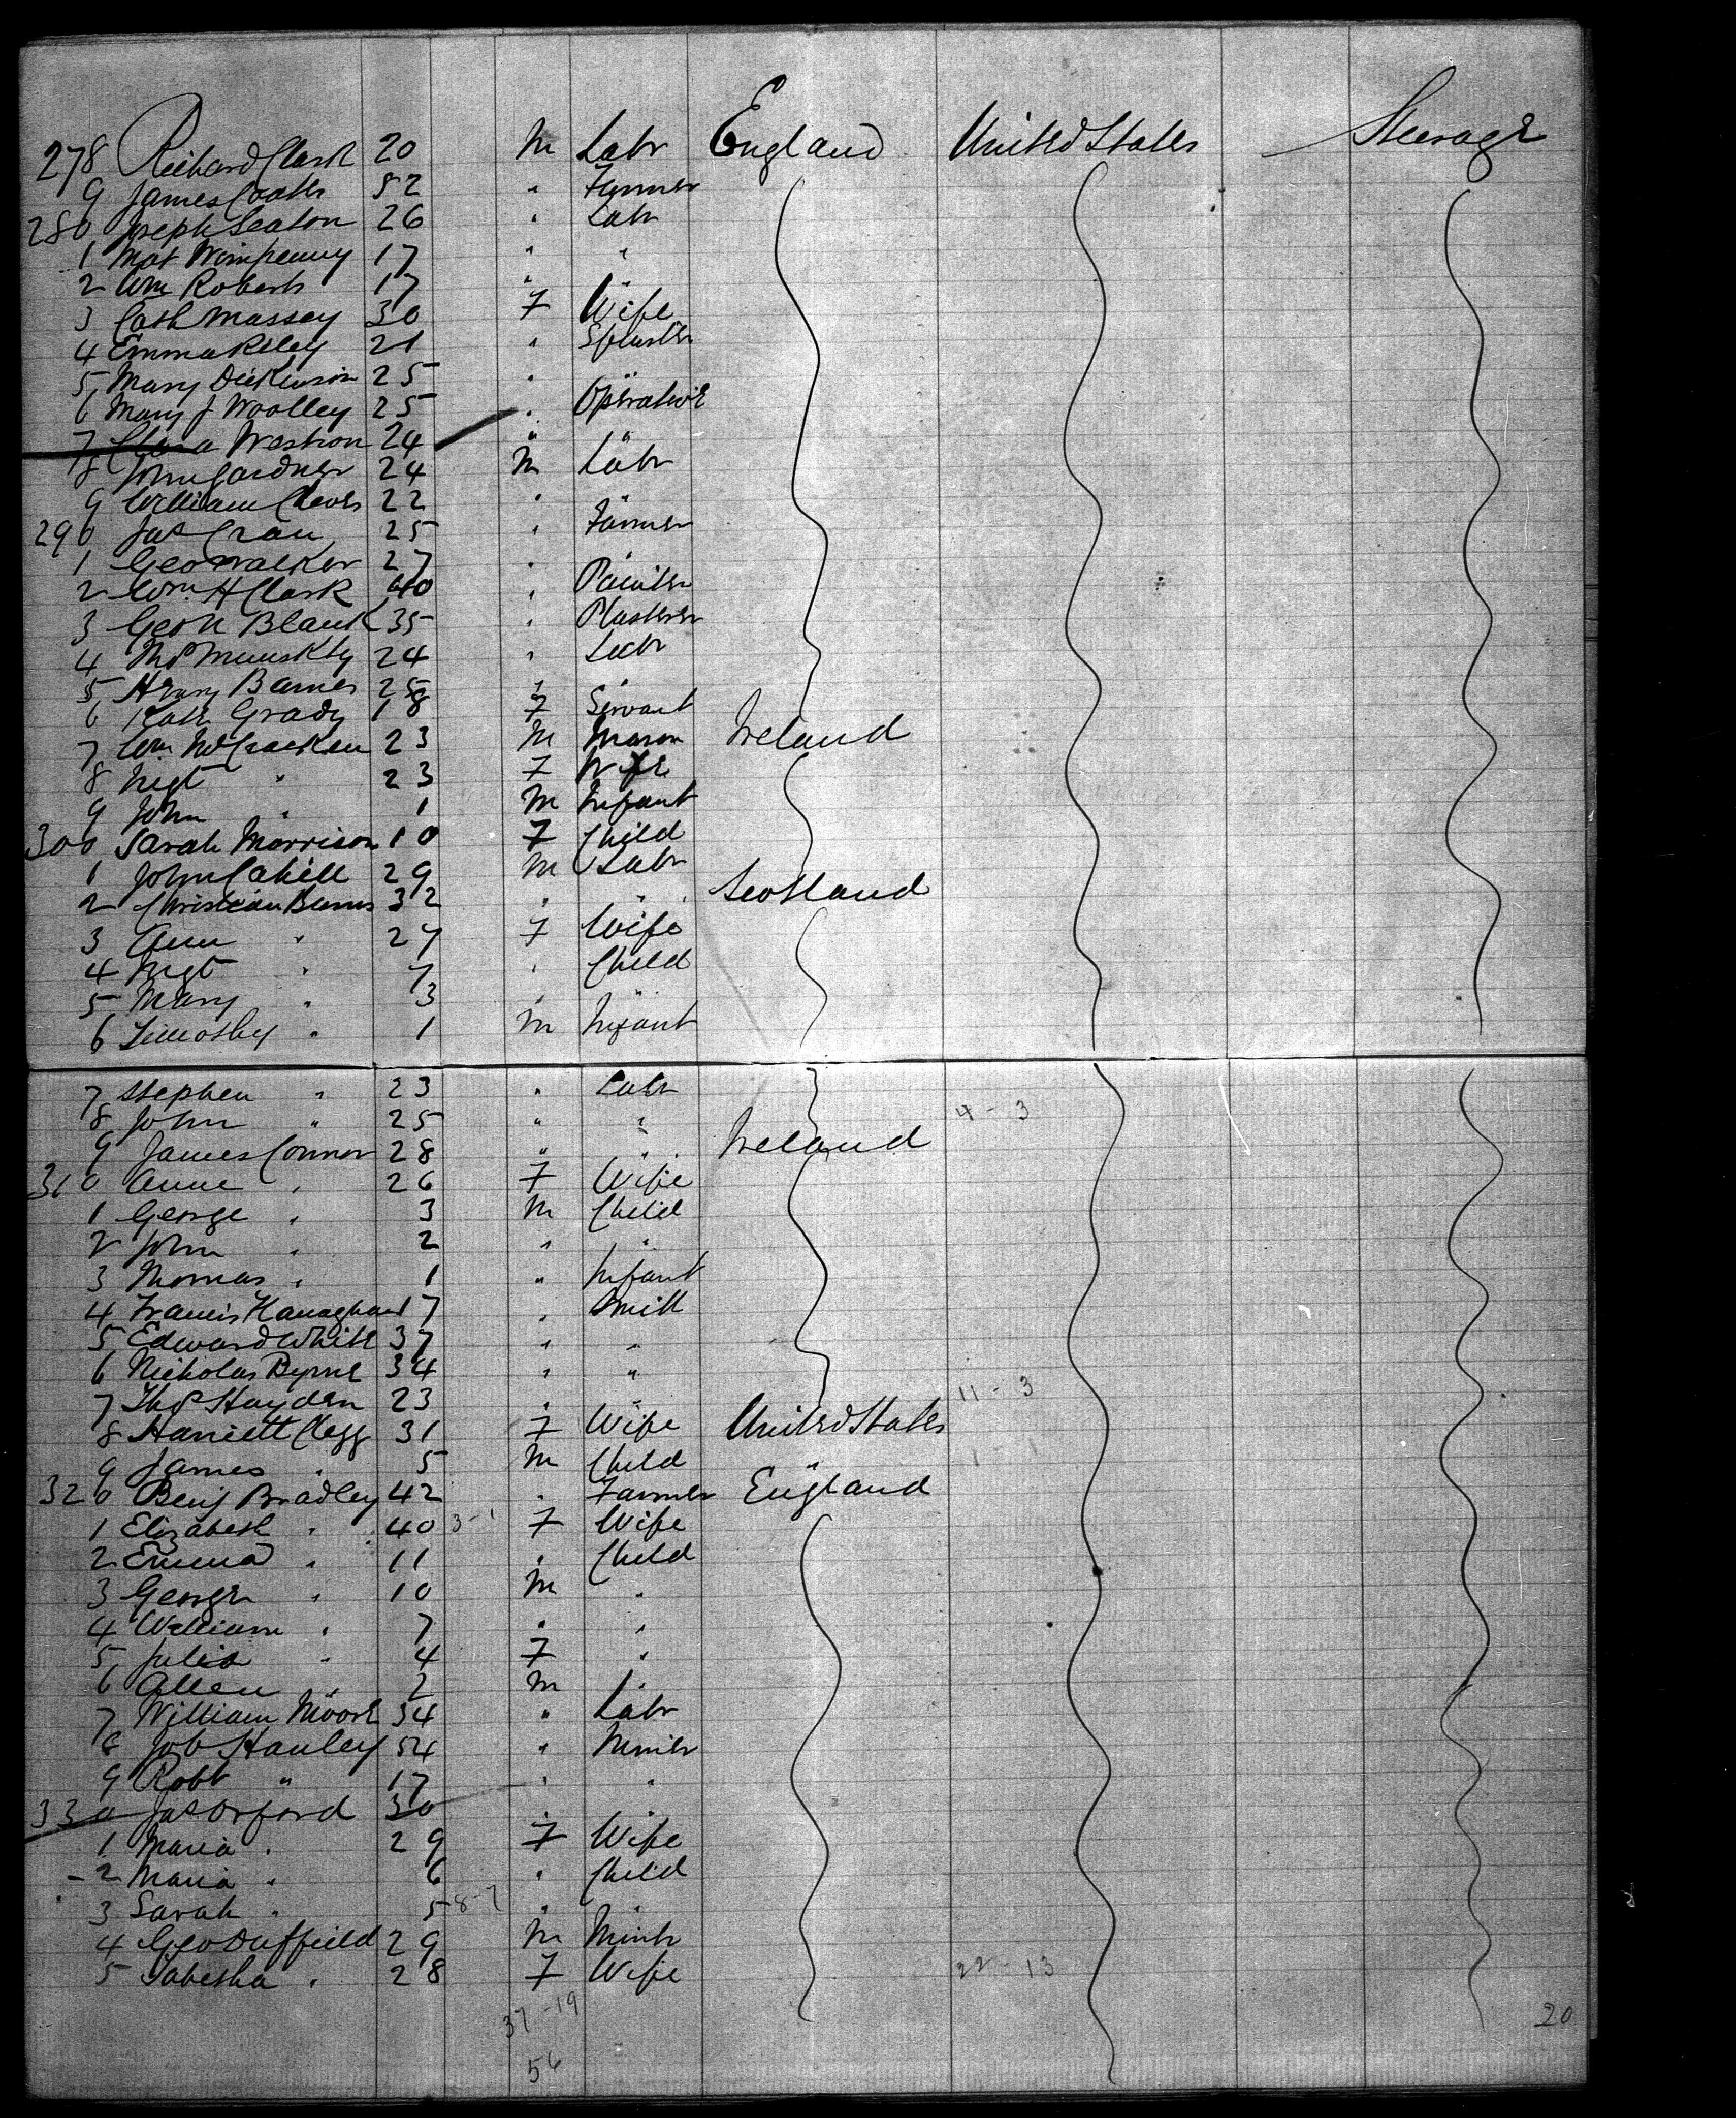 278 Richard Clark 20 M Labr England United States Steerage
9 James Coates 52 " Farmer
280 Joseph Seaton 26 " Labr
1 Mat Wimpenny 17 " "
2 Wm Roberts 17 "
3 Cath Massey 30 F Wife
4 Emma Riley 21 " Spinster
5 Mary Dickinson 25 " "
6 Mary J Woolley 25 " Operative
7 Clara Weston 24 " "
8 John Gardner 24 M Labr
9 William 22 "
290 Jas Cran 25 " Farmer
1 Geo Walker 27 "
2 Wm H Clark 40 " Painter
3 Geo N Blank 35 " Plasterer
4 Thos 24 " Labr
5 Henry Barnes 25 "
6 Kath Grady 18 F Servant
7 Wm McCracken 23 M Mason Ireland
8 Mgt " 23 F Wife
9 John " 1 M Infant
300 Sarah Morrison 10 F Child
1 John Cahill 29 M Labr
2 Christian Burns 32 " " Scotland
3 Ann " 27 F Wife
4 Mgt " 7 " Child
5 Mary " 3 " "
6 Timothy " 1 M Infant
7 Stephen " 23 " Labr
8 John " 25 " " 4-3
9 James Connor 28 " " Ireland
310 Anne " 26 F Wife
1 George " 3 M Child
2 John " 2 " "
3 Thomas " 1 " Infant
4 Francis Kanaghan 17 " Smith
5 Edward White 37 " "
6 Nicholas Byrne 34 " "
7 Thos Hayden 23 " " 11-3
8 Harriett Clegg 31 F Wife United States
9 James " 5 M Child "
320 Benj Bradley 42 " Farmer England
1 Elizabeth " 40 3-1 F Wife
2 Emma " 11 " Child
3 George " 10 M "
4 William " 7 " "
5 Julia " 4 F "
6 Allen " 2 M "
7 William Moore 34 " Labr
8 Job Hanley 54 " Miner
9 Robt " 17 " "
330 Jas Orford 30 " "
1 Maria " 29 F Wife
2 Maria " 6 " Child
3 Sarah " 5 8-7 " "
4 Geo Duffield 29 M Miner
5 Tabetha " 28 F Wife 22-13
37-19
20
56